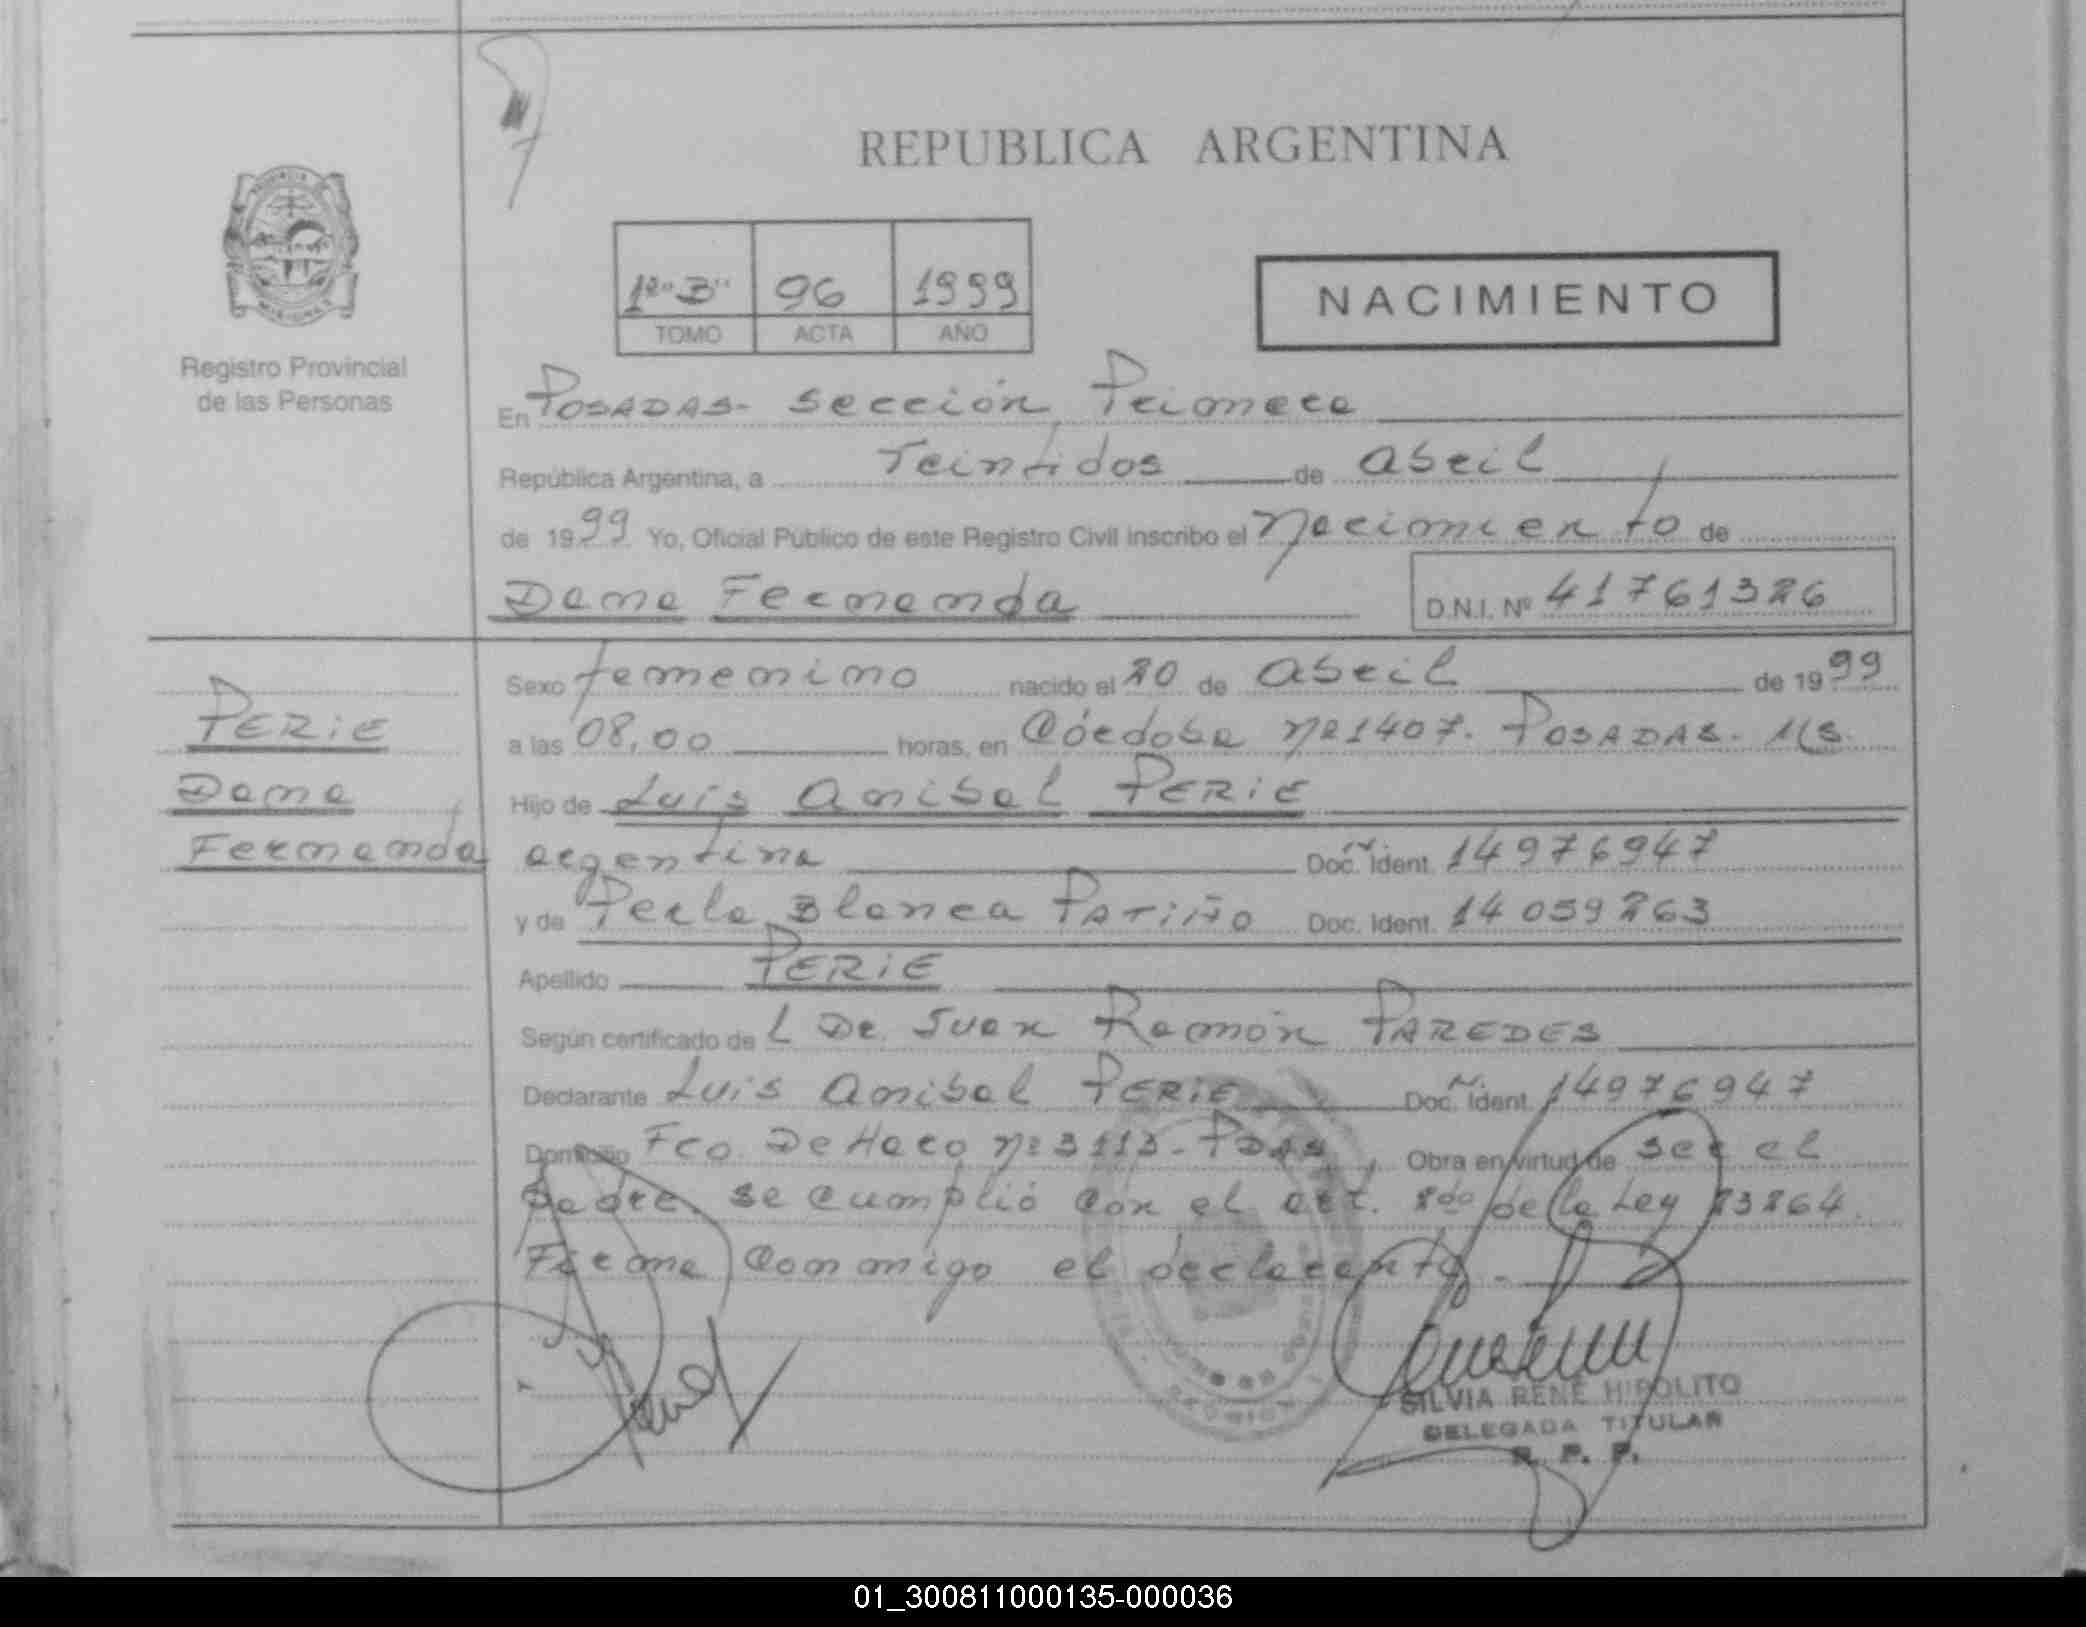 REPUBLICA ARGENTINA
1º "B" 96 1999
TOMO ACTA AÑO
NACIMIENTO
Registro Provincial
de las Personas
En POSADAS- Sección Primera
República Argentina, a Veintidos de abril
de 1999 Yo, Oficial Público de este Registro Civil inscribo el Nacimiento de
Dana Fernanda D.N.I. Nº 41761326
PERIE
Dana
Fernanda
Sexo femenino nacido el 20 de abril de 1999
a las 08,00 horas, en Córdoba Nº 1407. POSADAS. Ms.
Hijo de Luis Anibal PERIE
argentina Doc. Ident. 14976947
y de Perla Blanca PATIÑO Doc. Ident. 14059263
Apellido PERIE
Según certificado de L Dr. Juan Ramón PAREDES
Declarante Luis Anibal PERIE Doc. Ident. 14976947
Domicilio Fco. De Haro Nº 3113- PDAS, Obra en virtud de ser el
padre. se cumplió con el art. 2do de la Ley 23264.
Firma conmigo el declarante.-
SILVIA RENE HIPOLITO
DELEGADA TITULAR
R. P. P.
01_300811000135-000036